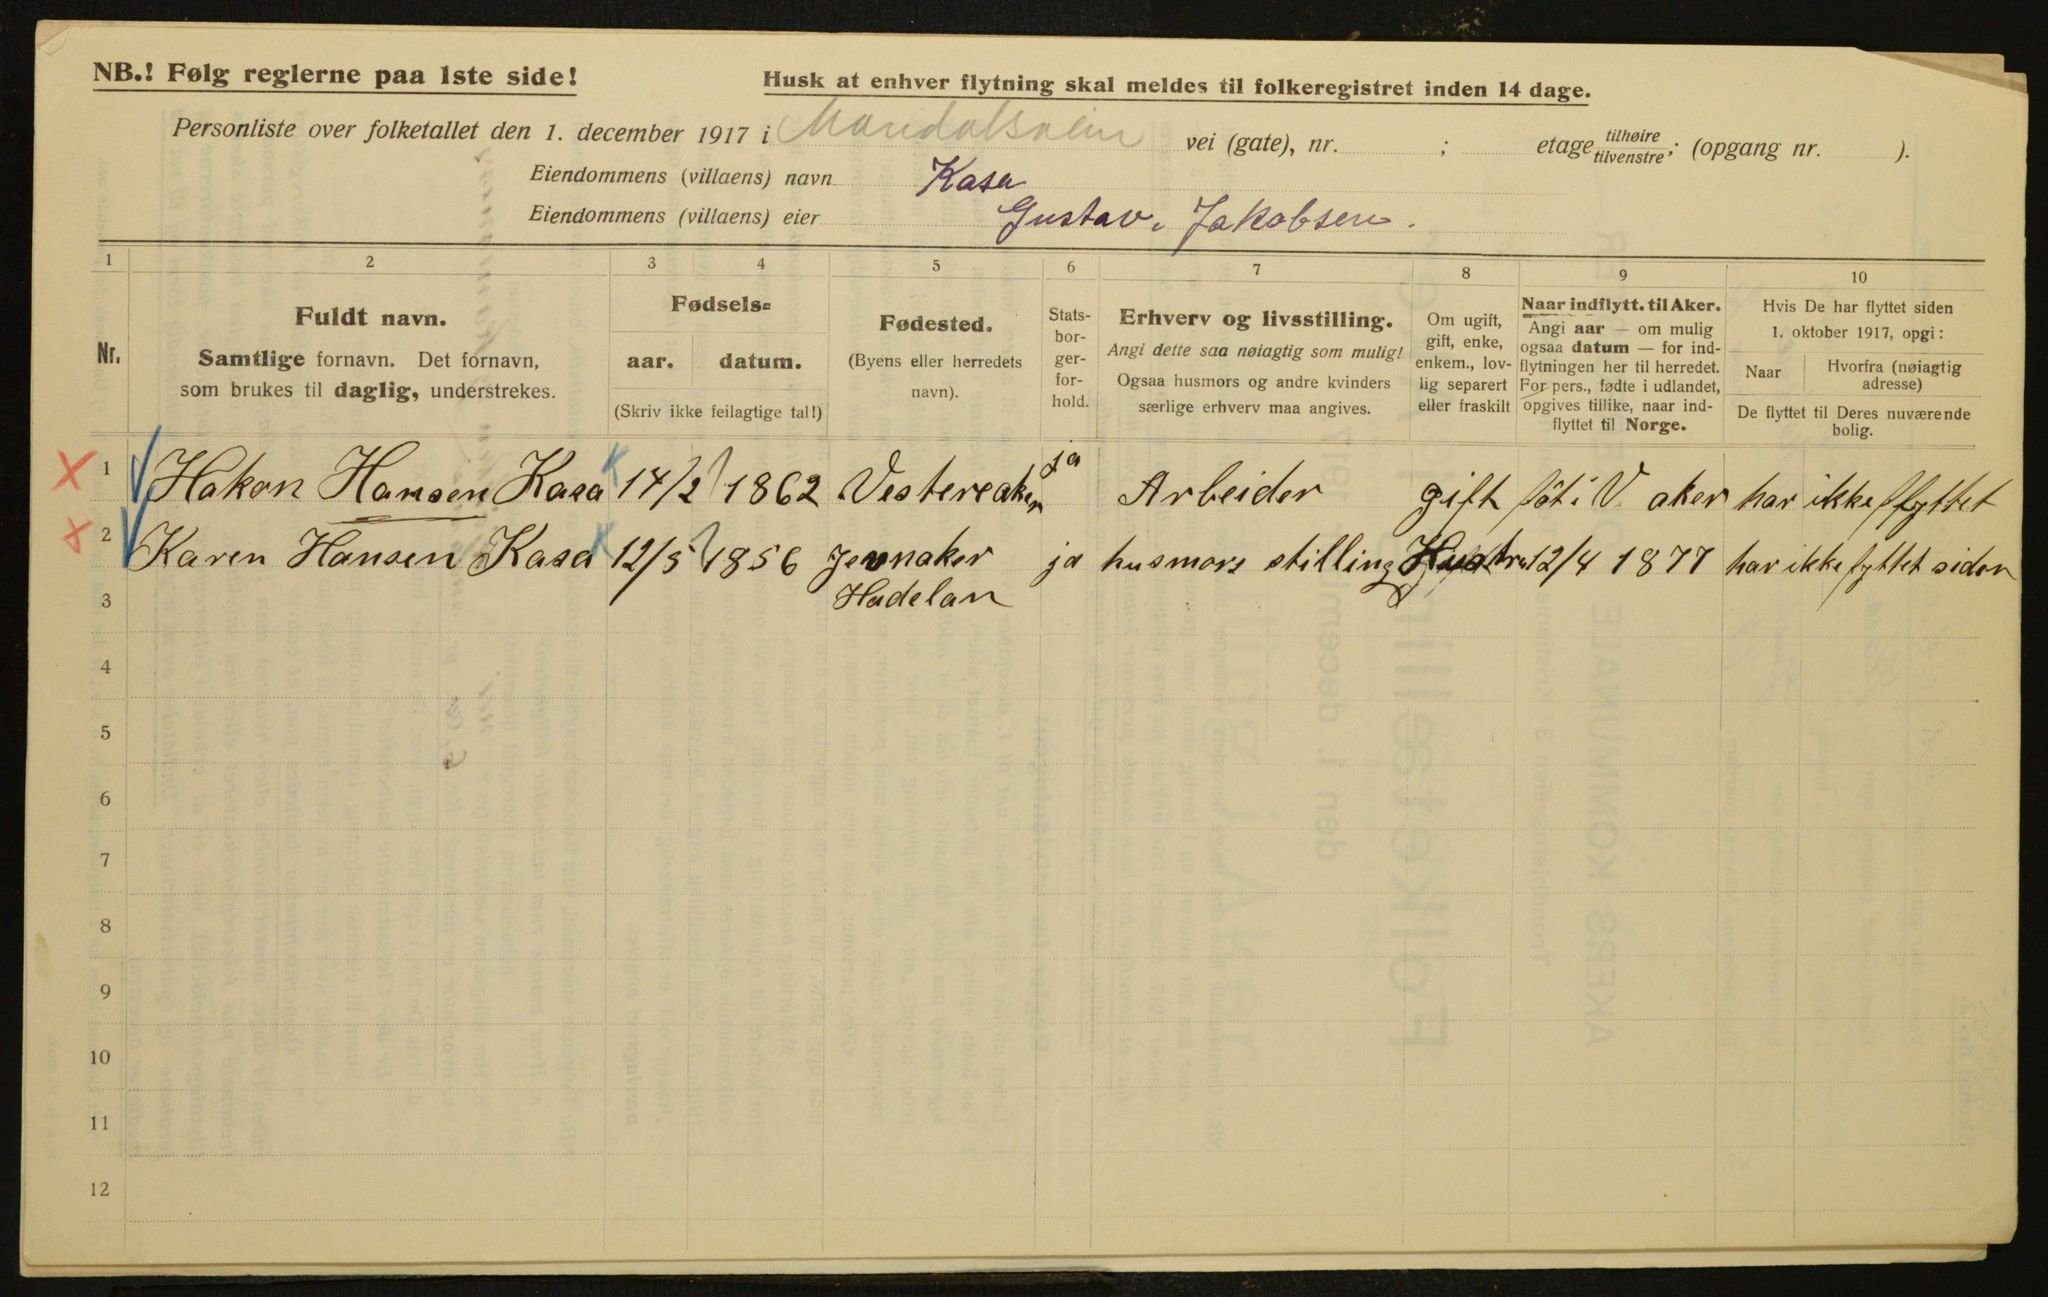 NB.! Følg reglerne paa 1ste side!
Husk at enhver flytning skal meldes til folkeregistret inden 14 dage.
Personliste over folketallet den 1. december 1917 i Maridalsveien vei (gate), nr. ; etage tilhøire tilvenstre; (opgang nr. ).
Eiendommens (villaens) navn Kasa
Eiendommens (villaens) eier Gustav. Jakobsen.
1 2 3 4 5 6 7 8 9 10
Nr.
Fuldt navn.
Samtlige fornavn. Det fornavn,
som brukes til daglig, understrekes.
Fødsels-
aar. datum.
(Skriv ikke feilagtige tal!)
Fødested.
(Byens eller herredets
navn).
Stats-
bor-
ger-
for-
hold.
Erhverv og livsstilling.
Angi dette saa nøiagtig som mulig!
Ogsaa husmors og andre kvinders
særlige erhverv maa angives.
Om ugift,
gift, enke,
enkem., lov-
lig separert
eller fraskilt
Naar indflytt. til Aker.
Angi aar — om mulig
ogsaa datum — for ind-
flytningen her til herredet.
For pers., fødte i udlandet,
opgives tillike, naar ind-
flyttet til Norge.
Hvis De har flyttet siden
1. oktober 1917, opgi:
Naar
Hvorfra (nøiagtig
adresse)
De flyttet til Deres nuværende
bolig.
1 Hakon Hansen Kasa 14/2 1862 Vestereaker ja Arbeider gift föt i V. aker har ikke flyttet
2 Karen Hansen Kasa 12/5 1856 Jevnaker ja husmors stilling Hustru 12/4 1877 har ikke fyttet siden
3 Hadelan
4
5
6
7
8
9
10
11
12